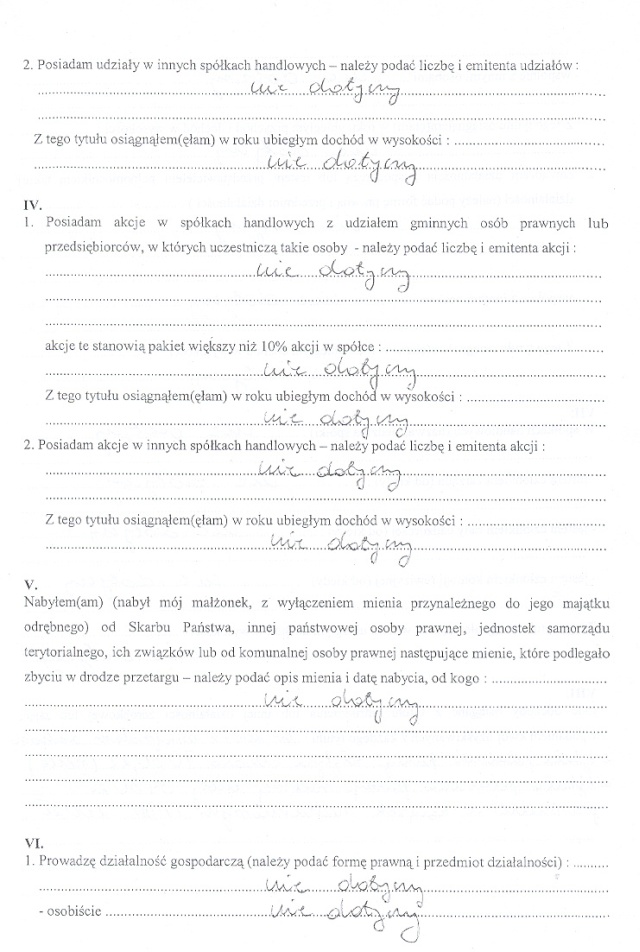 2. Posiadam udziały w innych spółkach handlowych – należy podać liczbę i emitenta udziałów :
nie dotyczy
Z tego tytułu osiągnąłem(ęłam) w roku ubiegłym dochód w wysokości :
nie dotyczy
IV.
1. Posiadam akcje w spółkach handlowych z udziałem gminnych osób prawnych lub
przedsiębiorców, w których uczestniczą takie osoby - należy podać liczbę i emitenta akcji :
nie dotyczy
akcje te stanowią pakiet większy niż 10% akcji w spółce :
nie dotyczy
Z tego tytułu osiągnąłem(ęłam) w roku ubiegłym dochód w wysokości :
nie dotyczy
2. Posiadam akcje w innych spółkach handlowych – należy podać liczbę i emitenta akcji :
nie dotyczy
Z tego tytułu osiągnąłem(ęłam) w roku ubiegłym dochód w wysokości :
nie dotyczy
V.
Nabyłem(am) (nabył mój małżonek, z wyłączeniem mienia przynależnego do jego majątku
odrębnego) od Skarbu Państwa, innej państwowej osoby prawnej, jednostek samorządu
terytorialnego, ich związków lub od komunalnej osoby prawnej następujące mienie, które podlegało
zbyciu w drodze przetargu – należy podać opis mienia i datę nabycia, od kogo :
nie dotyczy
VI.
1. Prowadzę działalność gospodarczą (należy podać formę prawną i przedmiot działalności) :
nie dotyczy
- osobiście nie dotyczy